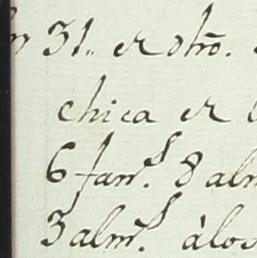 31,, er otrō.
chica er
6 fanˢ. 8 alm
3 almˢ. à los